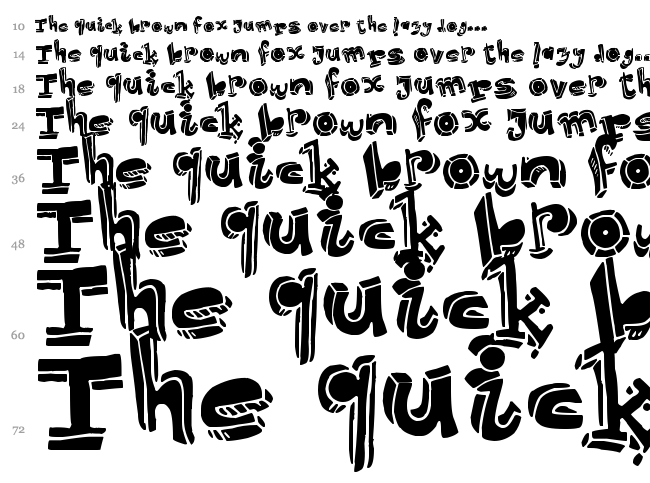 10 The quick brown fox jumps over the lazy dog...
14 The quick brown fox jumps over the lazy dog..
18 The quick brown fox jumps over th
24 The quick brown fox jumps
36 The quick brown fo
48 The quick brow
60 The quick b
72 The quick